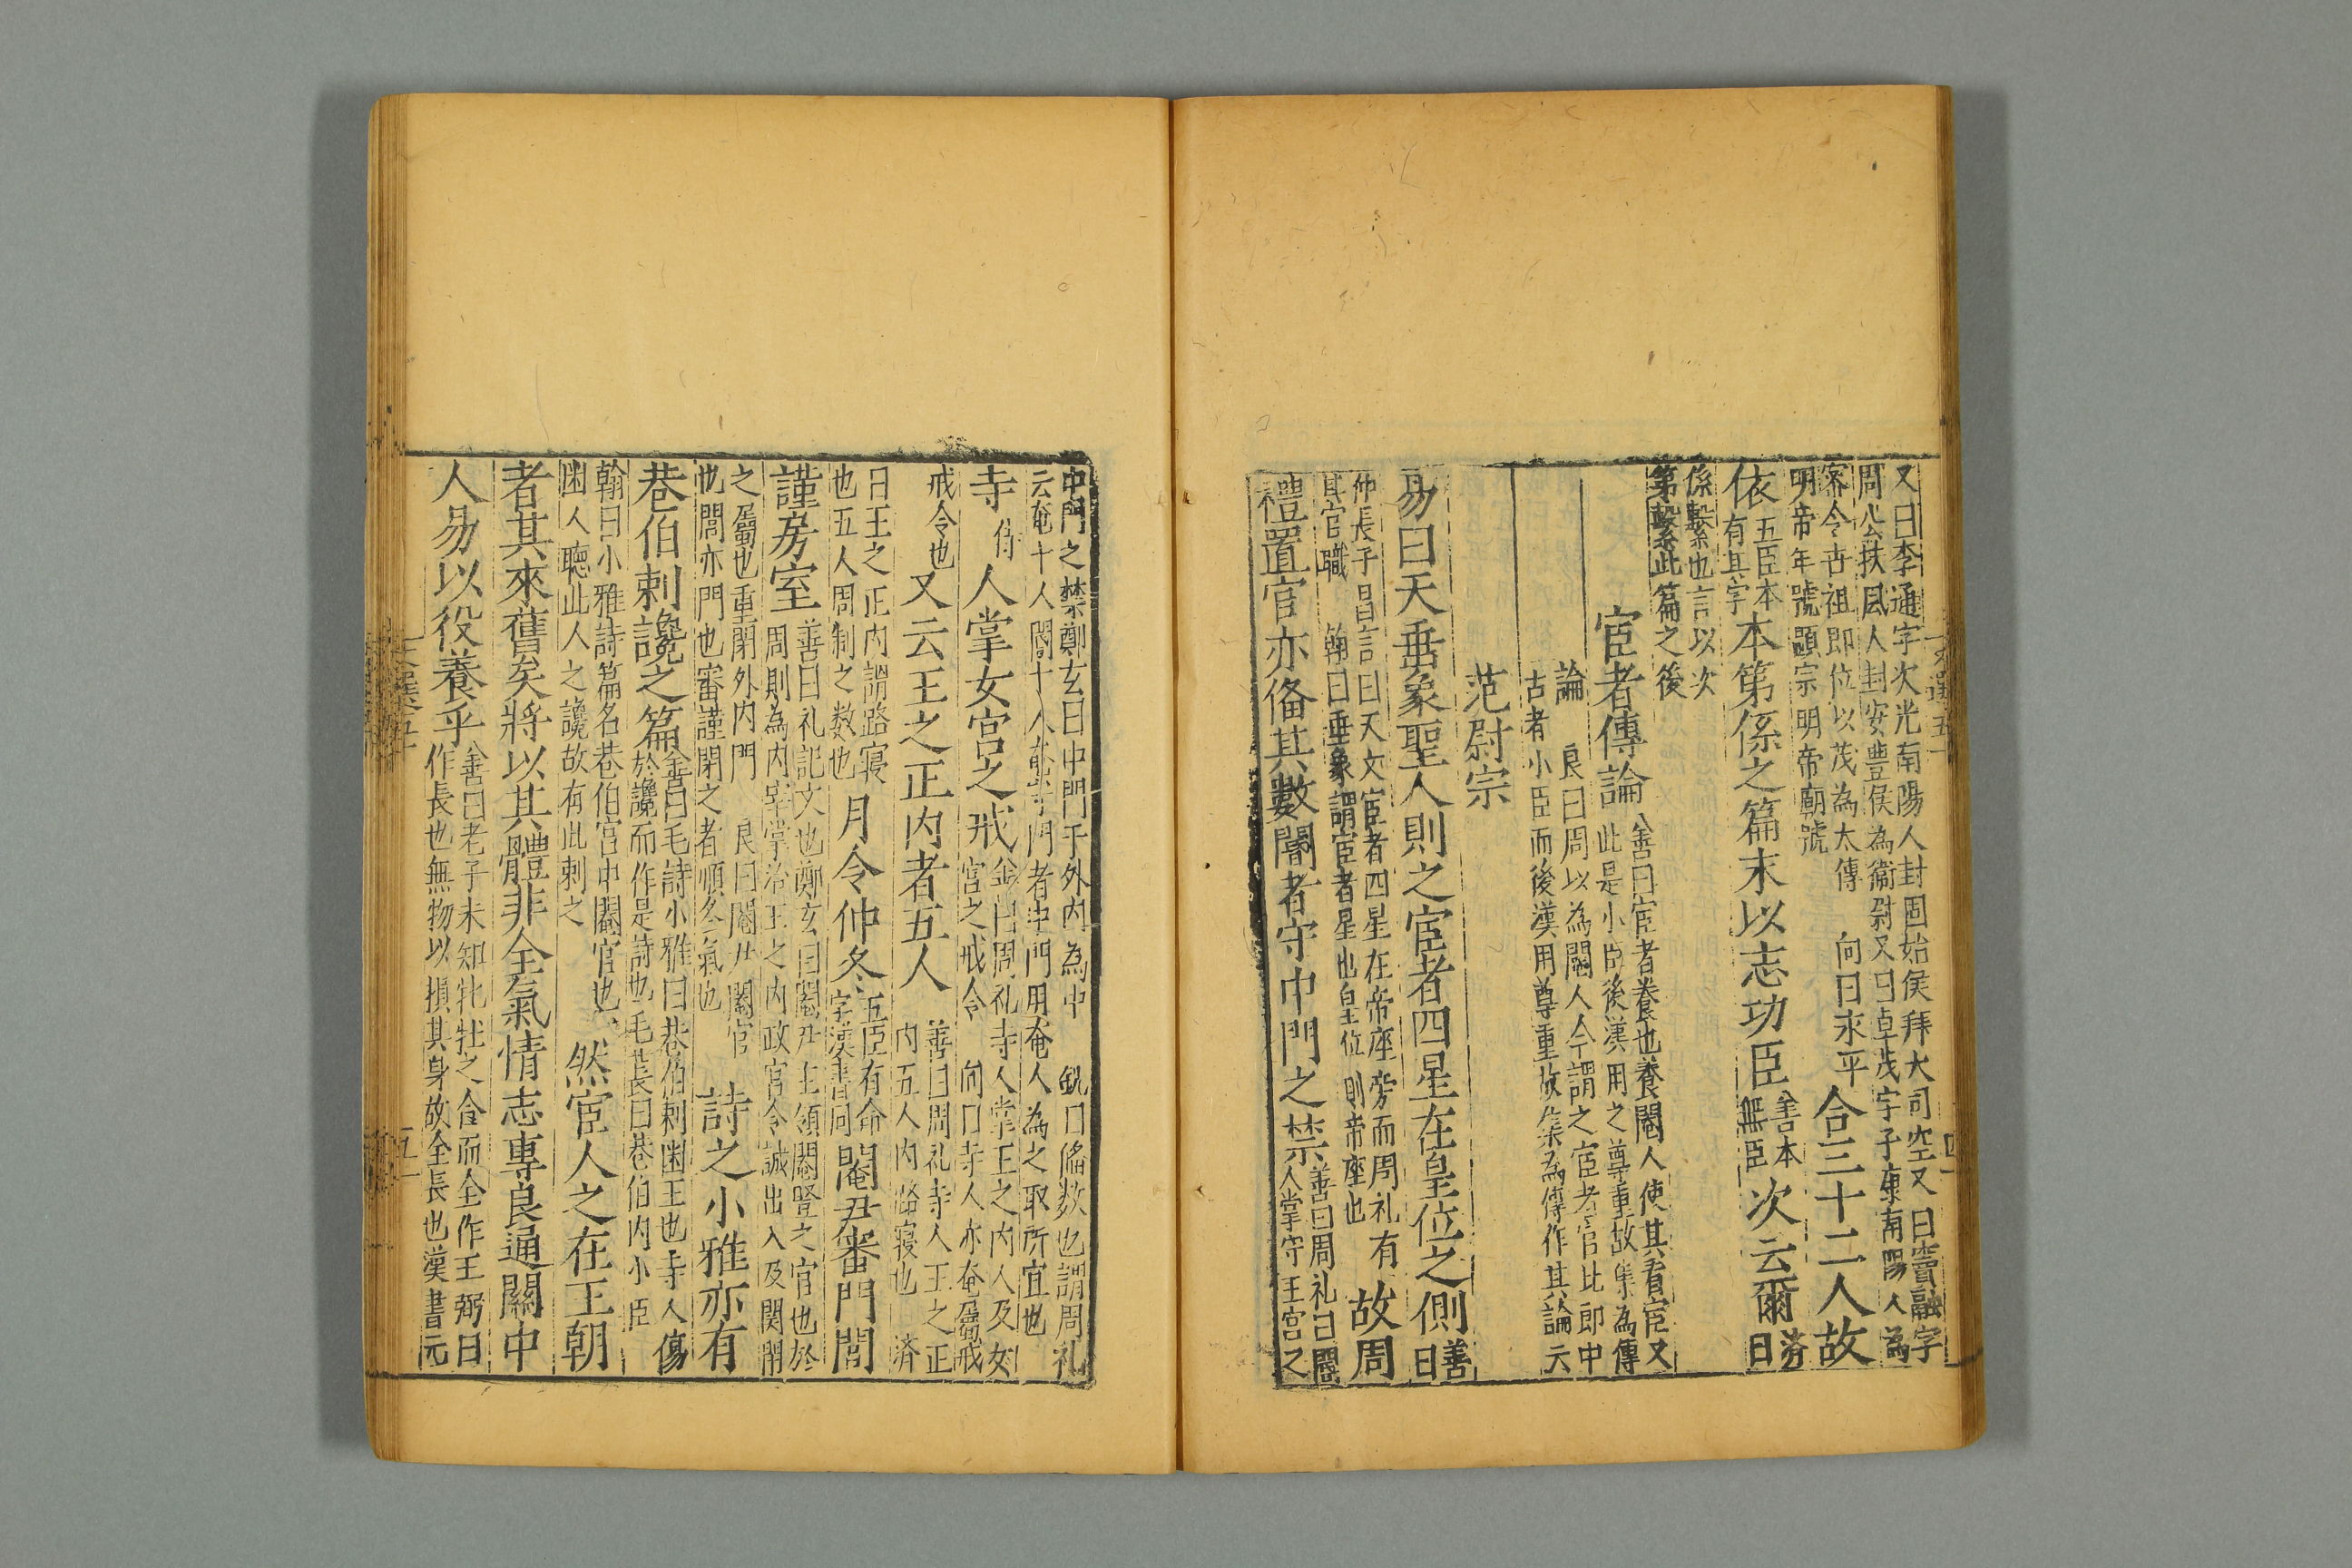 又曰李通字次光南陽人封固始侯拜大司空又曰竇融字
周公扶風人封安豊侯為衞尉又曰卓茂字子康南陽人為
密令世祖即位以茂為太傅 向曰永平 合三十二人故
明帝年號顯宗明帝廟號
依 五臣本有其字 本第係之篇末以志功臣 善本無臣 次云爾 濟曰
係繫也言以次
第繫此篇之後
宦者傳論 善曰宦者養也養閹人使其看宦又
此是小臣後漢用之尊重故集為傳
論 良曰周以為閹人今謂之宦者官比即中
古者小臣而後漢用尊重故集為傳作其論
范尉宗
易曰天垂象聖人則之宦者四星在皇位之側 善曰
仲長子昌言曰天文宦者四星在帝座旁而周礼有
其官職 翰曰垂象謂宦者星也皇位則帝座也 故周
禮置官亦俻其數閽者守中門之禁 善曰周礼曰閽人掌守王宮之
中門之禁鄭玄曰中門于外内為中 銑曰俻數也謂周礼
云奄十人閽十人奄守門者中門用奄人為之取所宜也
寺 侍 人掌女宮之戒 善曰周礼寺人掌王之内人及女
宮之戒令 向曰寺人亦奄屬戒
戒令也 又云王之正内者五人 善曰周礼寺人王之正
内五人内路寝也 濟
曰王之正内謂路寝
也五人周制之數也 月令仲冬 五臣有命字漢書同 閹尹審門閭
謹房室 善曰礼記文也鄭玄曰閹尹主領閹豎之官也於
周則為内宰掌治王之内政宮令誡出入及関閉
之屬也重閉外内門 良曰閹尹閹官
也閭亦門也審謹閉之者順冬氣也 詩之小雅亦有
巷伯刺讒之篇 善曰毛詩小雅曰巷伯刺幽王也寺人傷
於讒而作是詩也毛萇曰巷伯内小臣
翰曰小雅詩篇名巷伯宮中閹官也
幽人聽此人之讒故有此刺之 然宦人之在王朝
者其來舊矣將以其體非全氣情志專良通關中
人易以役養乎 善曰老子未知牝牡之合而全作王弼曰
作長也無物以損其身故全長也漢書元